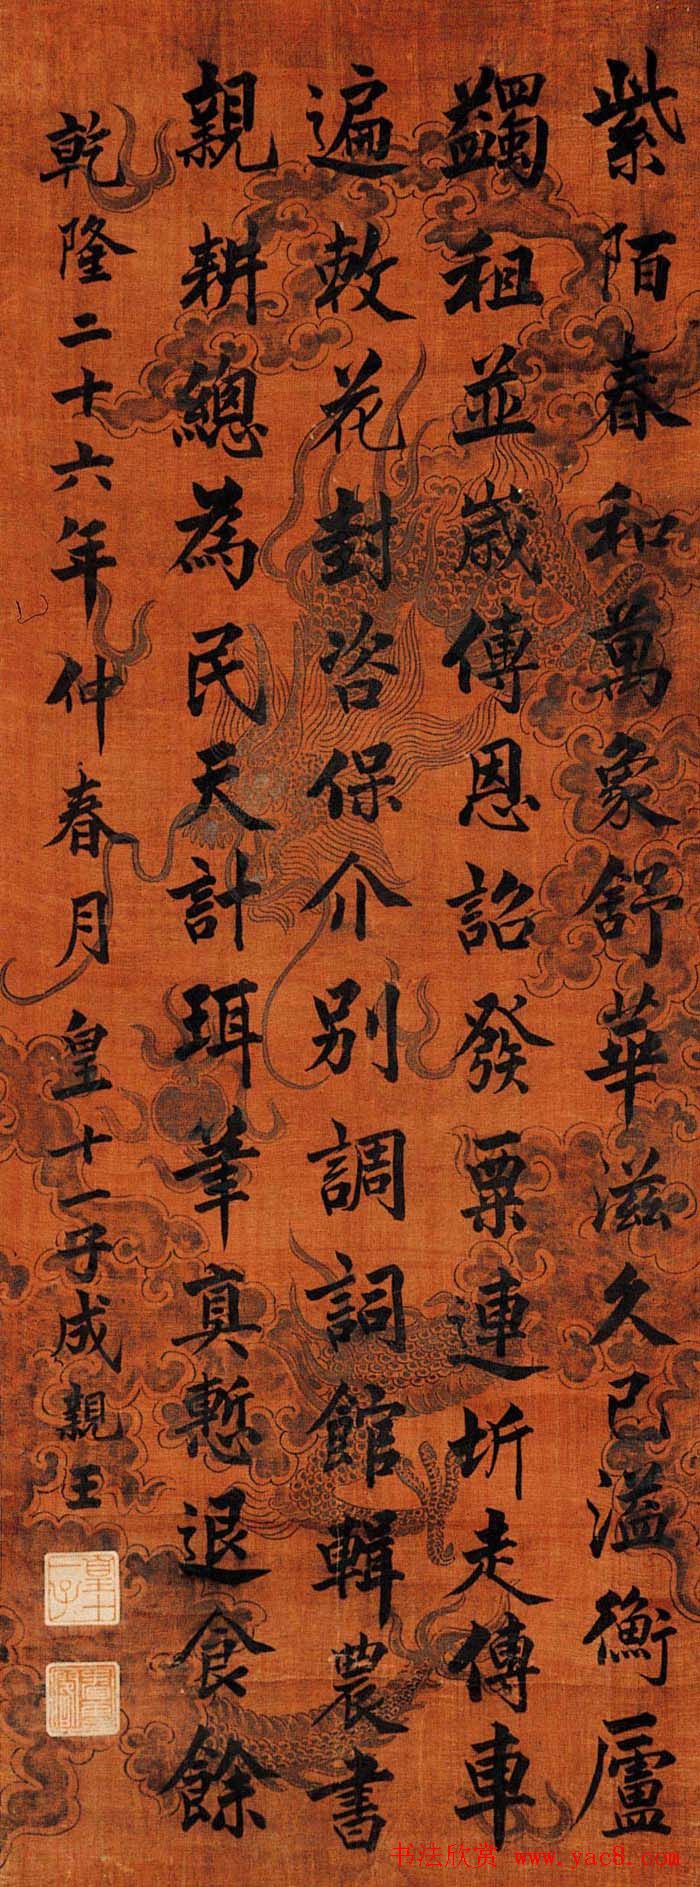 紫陌春和萬象舒華滋久已溢衡廬
蠲租並歲傳恩詔發粟連圻走傳車
遍敕花封咨保介別調詞館輯農書
親耕總為民天計珥筆真慙退食餘
乾隆二十六年仲春月皇十一子成親王
皇十一子
书法欣赏 www.yac8.com